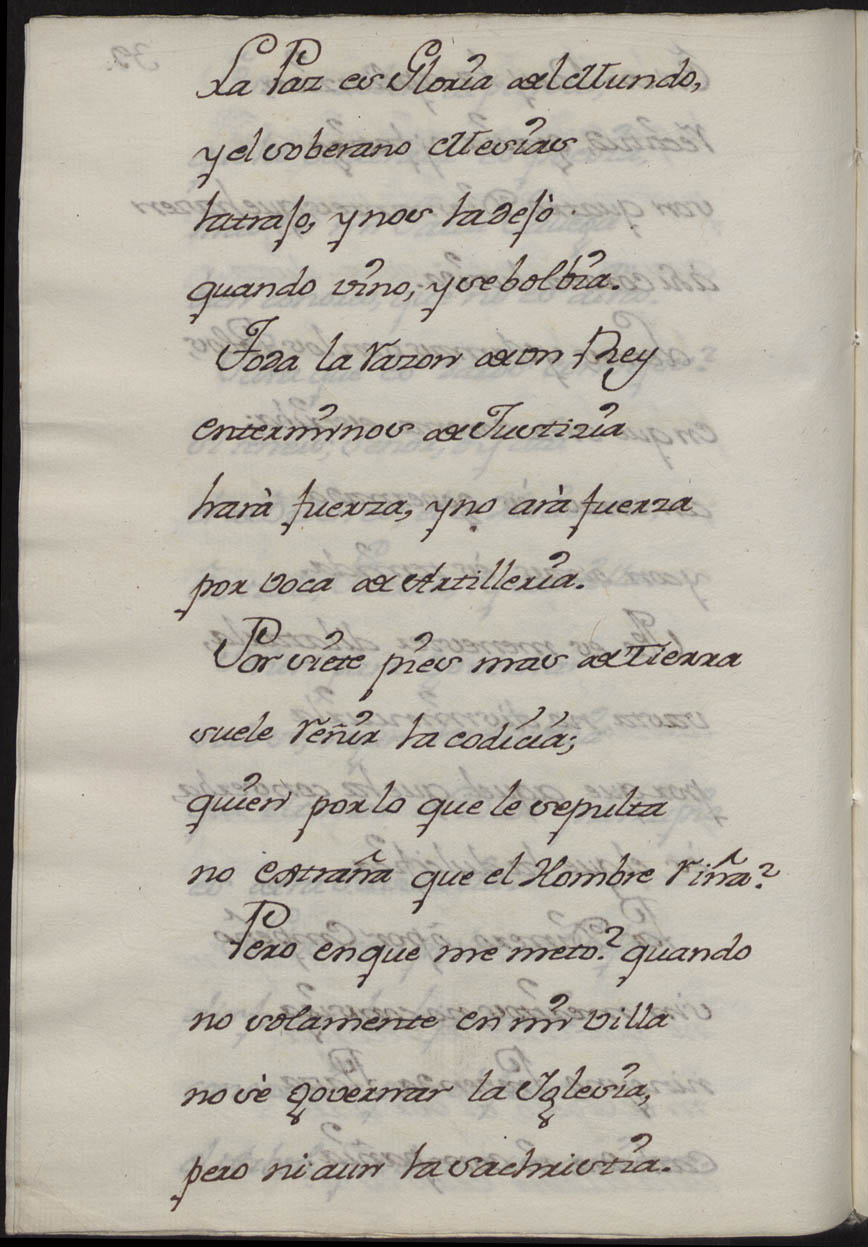 La Paz es Gloria del Mundo,
y el soberano Mesias
la trajo, y nos la dejò
quando vino, y se bolbia.
Toda la razon de un Rey
en terminos de Justizia
harà fuerza, y no arà fuerza
por voca de Artilleria.
Por siete pies mas de Tierra
suele reñir la codicia;
quien por lo que le sepulta
no extraña que el Hombre riña?
Pero en que me meto? quando
no solamente en mi villa
no sè governar la Yglesia,
pero ni aun la sachristia.